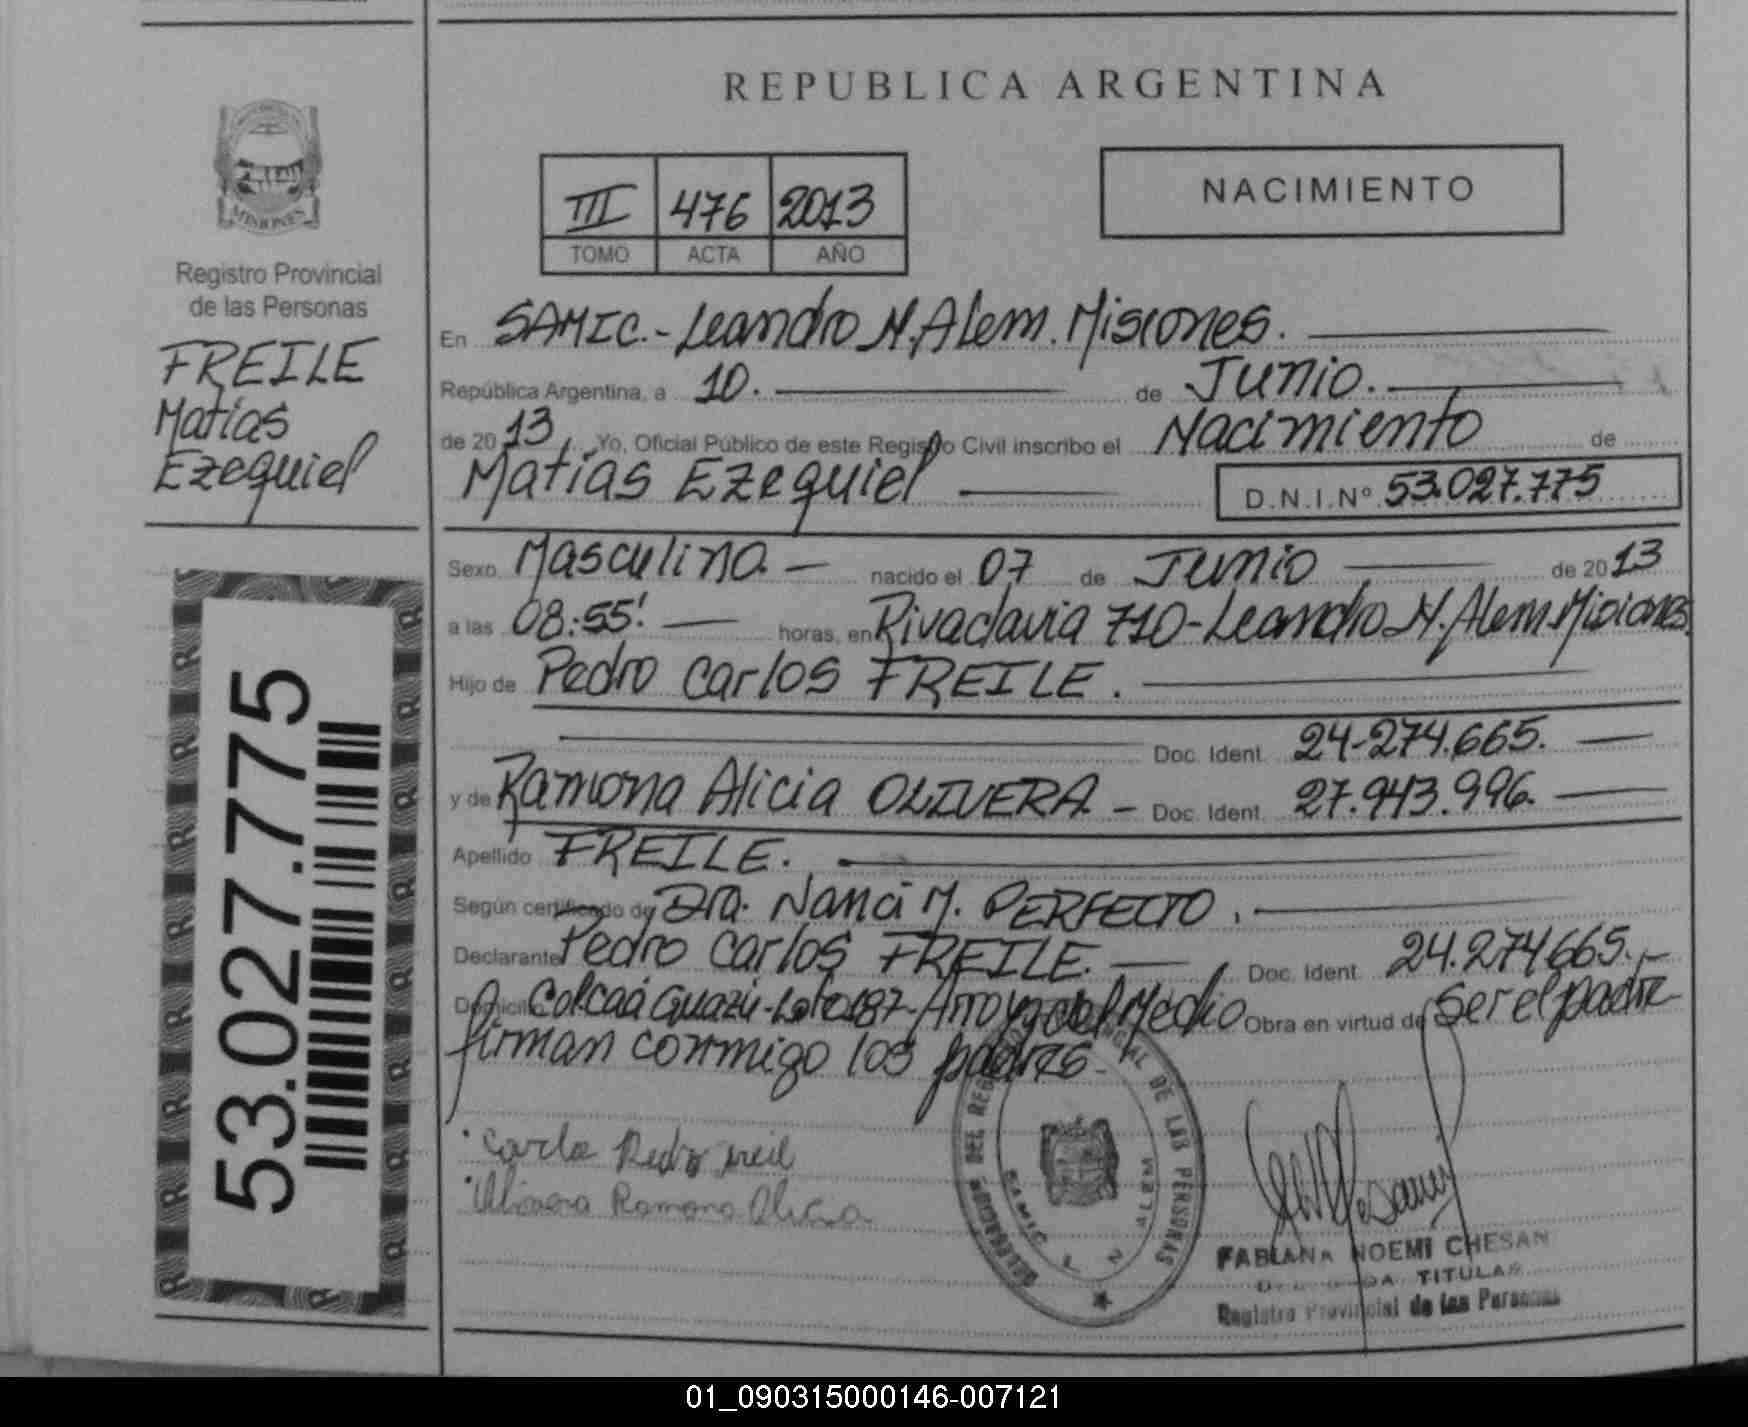 REPUBLICA ARGENTINA
III 476 2013
TOMO ACTA AÑO
NACIMIENTO
MISIONES
Registro Provincial
de las Personas
FREILE
Matías
Ezequiel
53.027.775
En SAMIC.- Leandro N. Alem. Misiones.
República Argentina, a 10. de Junio.
de 2013, Yo, Oficial Público de este Registro Civil inscribo el Nacimiento de
Matías Ezequiel D.N.I.Nº 53.027.775
Sexo Masculino. nacido el 07 de Junio de 2013
a las 08:55! horas, en Rivadavia 710- Leandro N. Alem. Misiones.
Hijo de Pedro Carlos FREILE.
Doc. Ident. 24-274.665.
y de Ramona Alicia OLIVERA. Doc. Ident. 27.943.996.
Apellido FREILE.
Según certificado de Dra. Nanci M. PERFECTO.
Declarante Pedro Carlos FREILE. Doc. Ident. 24.274665.
Domicilio Guazú- Lote 187- Arroyo del Medio Obra en virtud de Ser el padre
firman conmigo los padres.
Carlo
Olivera Ramona Alicia
DELEGACION DEL REGISTRO PROVINCIAL DE LAS PERSONAS
SAMIC L N ALEM
FABIANA NOEMI CHESAN
TITULAR
Registro Provincial de las Personas
01_090315000146-007121